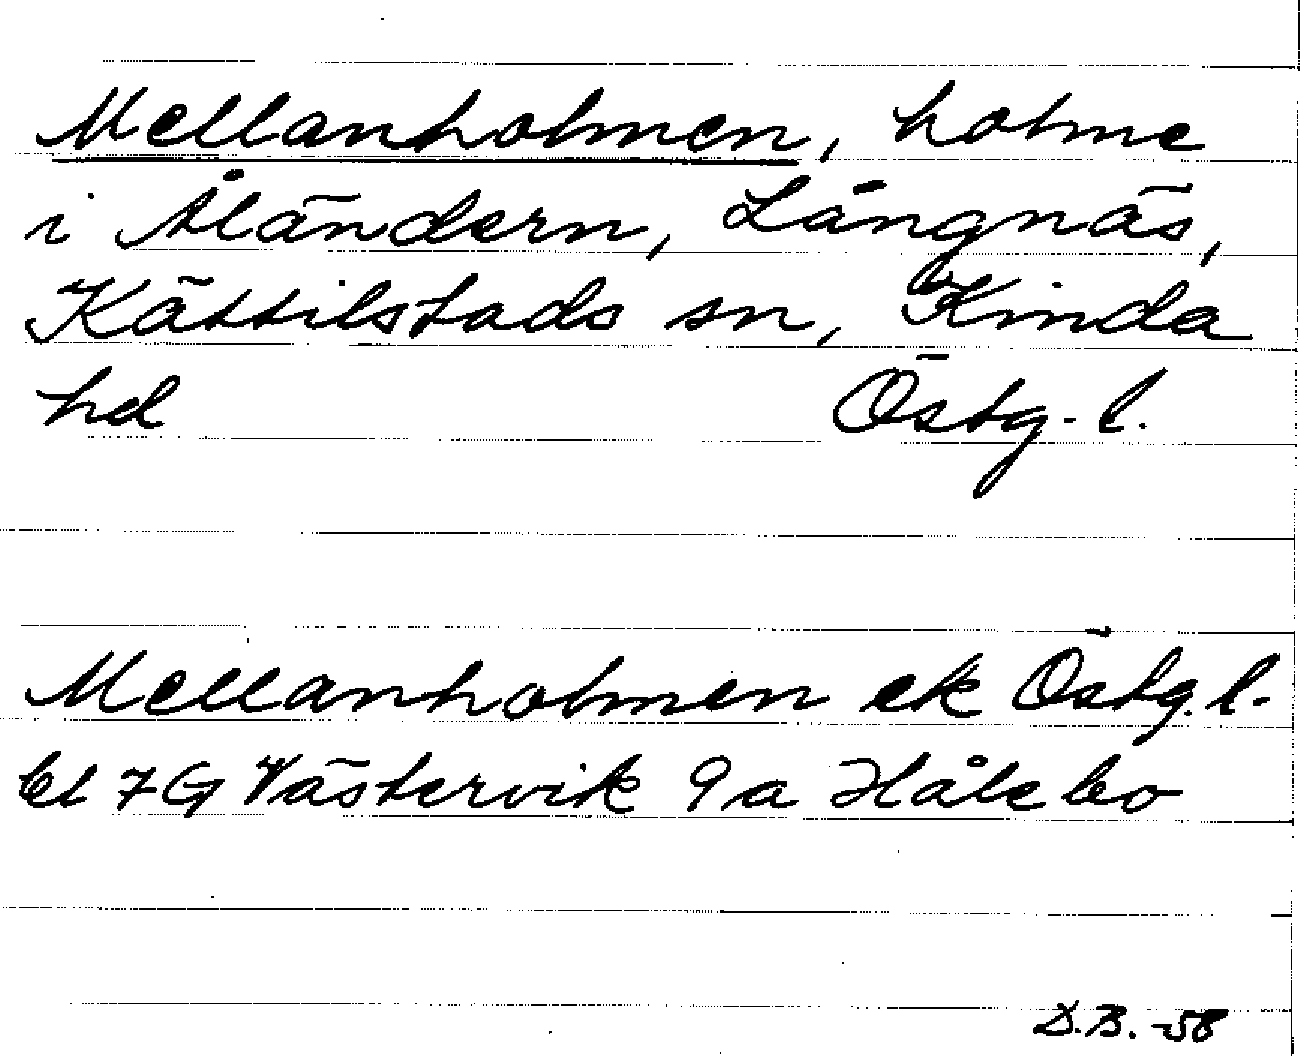 Mellanholmen, holme
i Åländern, Långnäs,
Kättilstads sn, Kinda
hd Östg. l.
Mellanholmen ek Östg. l.
bl 7G Västervik 9a Hålebo
D.B. -58